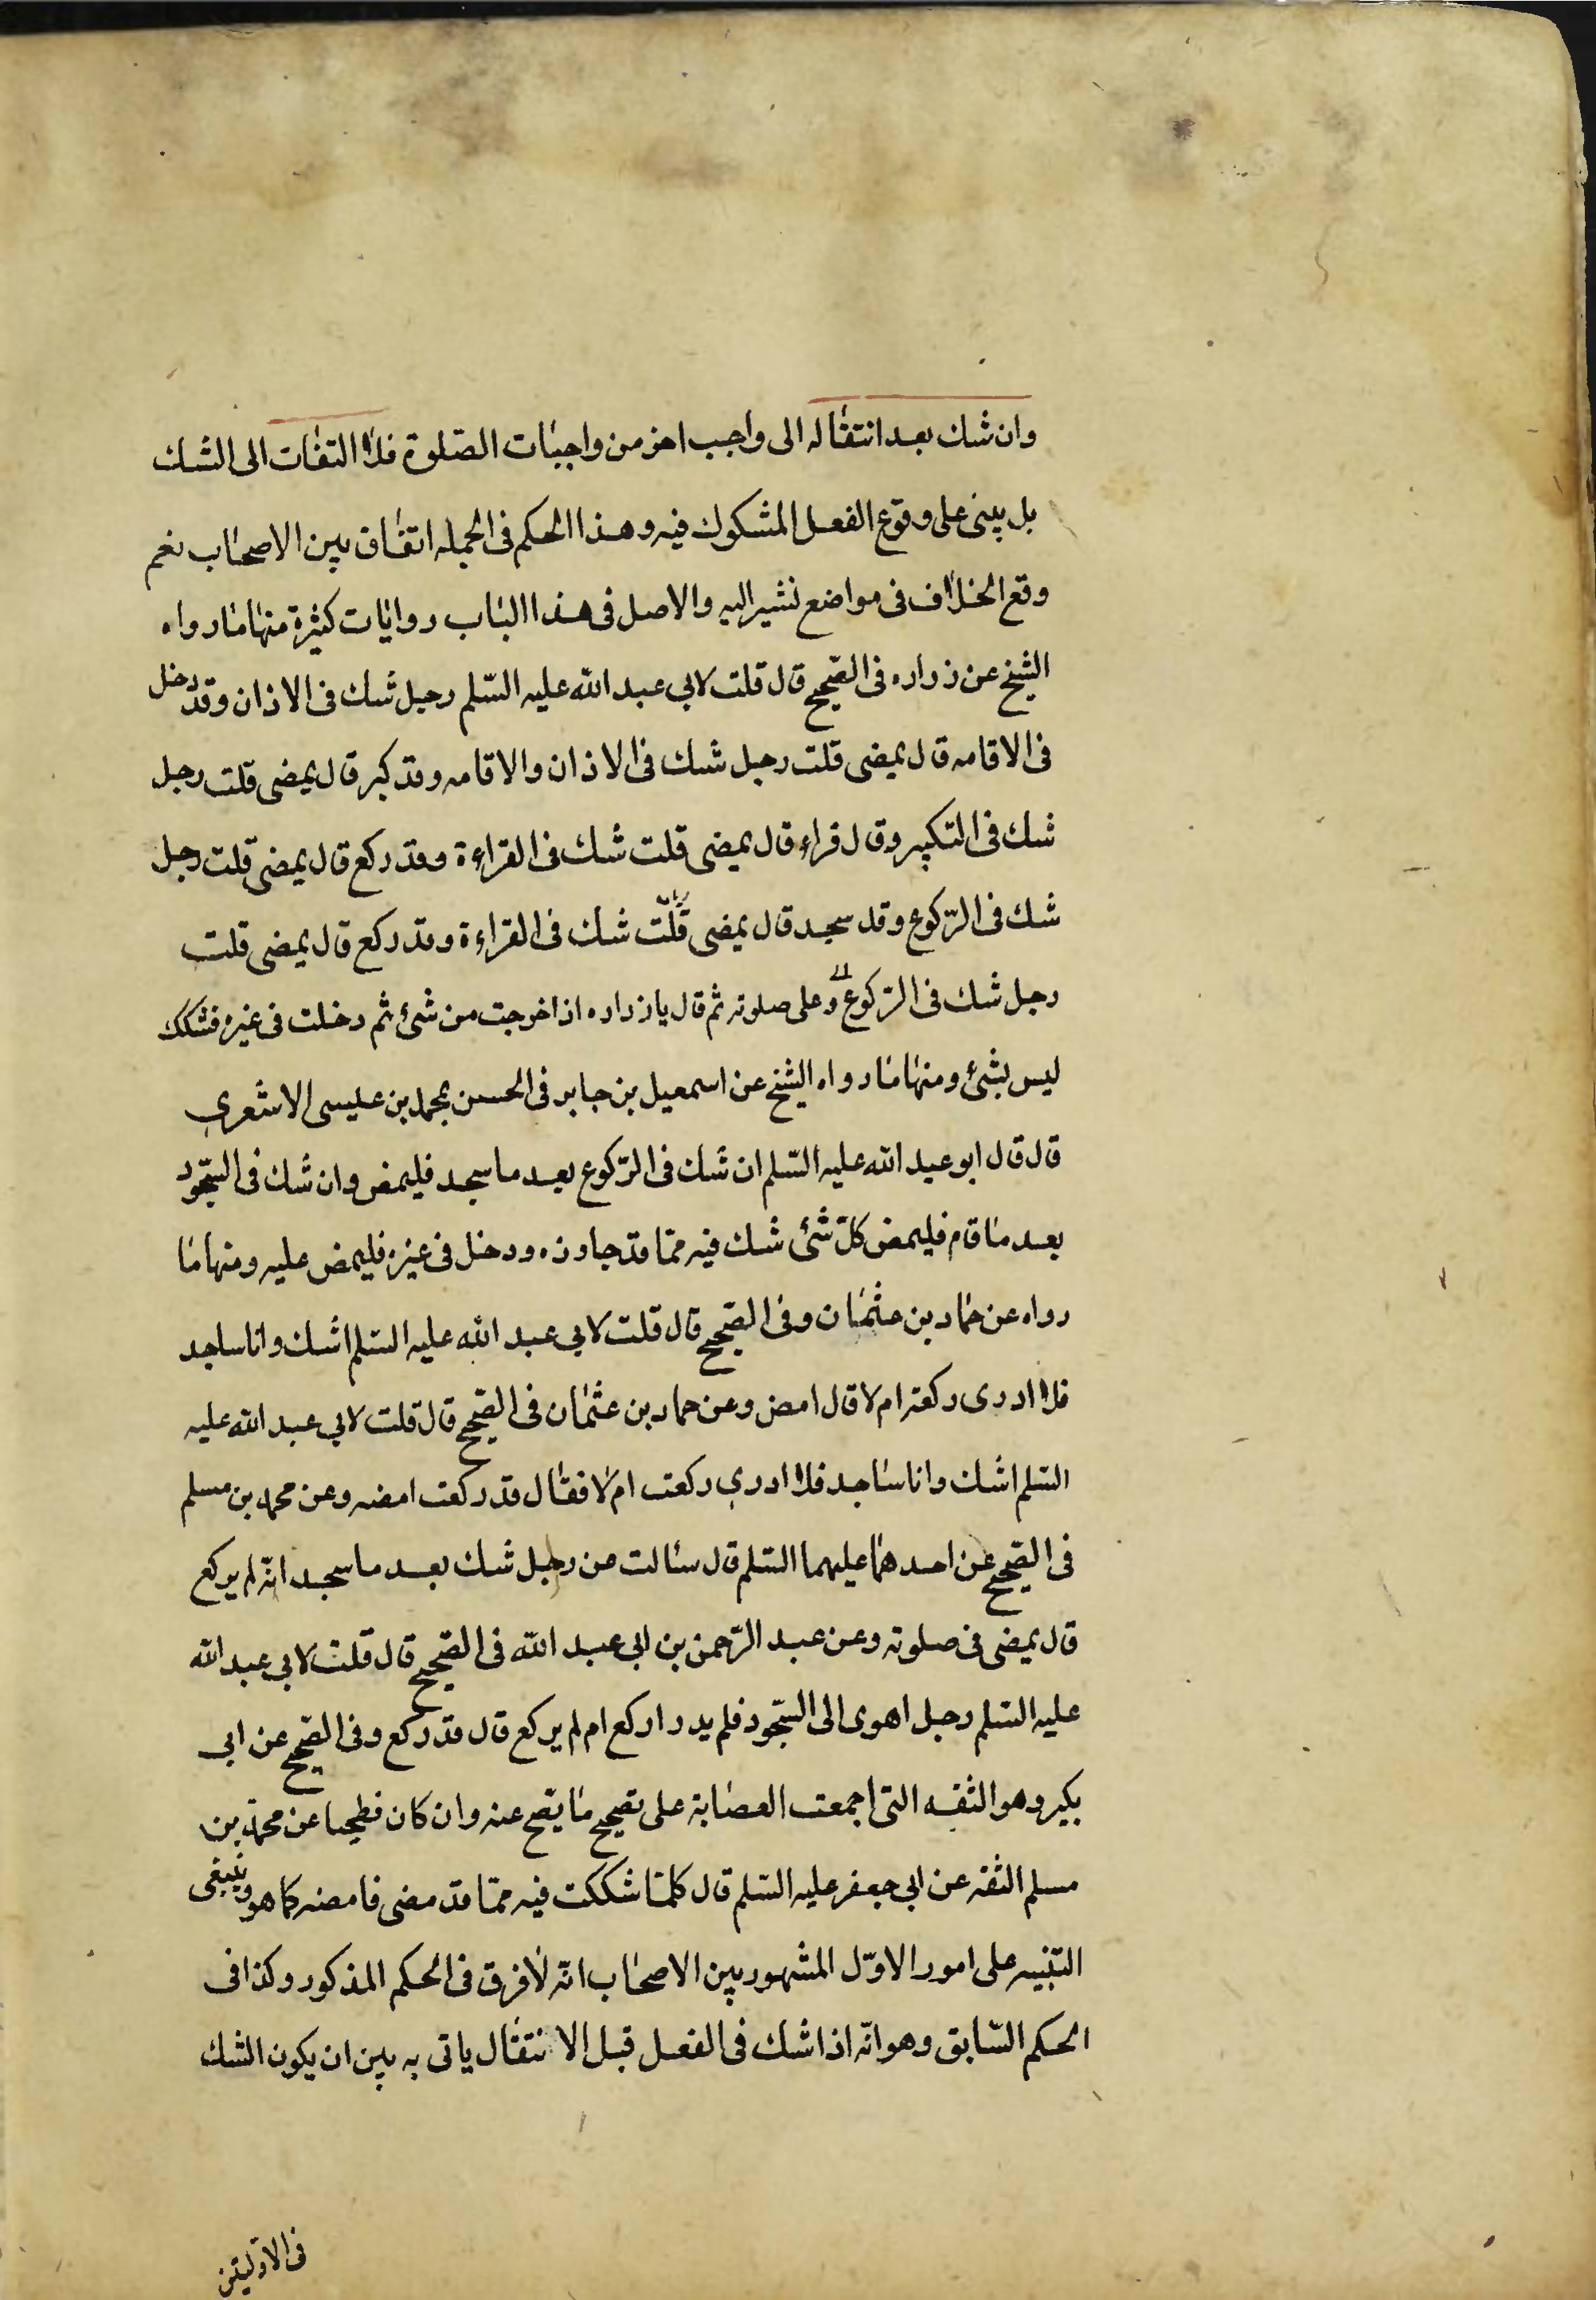 وان شك بعد انتقاله الى واجب اخر من واجبات الصّلوة فلا التفات الى الشك
بل يبنى على وقوع الفعل المشكوك فيه وهذا الحكم فى الجمله اتفاق بين الاصحاب نعم
وقع الخلاف فى مواضع نشير اليه والاصل فى هذا الباب روايات كثيرة منها ما رواه
الشيخ عن زراره فى الصّحيح قال قلت لابى عبد الله عليه السّلم رجل شك فى الاذان وقد دخل
فى الاقامه قال يمضى قلت رجل شك فى الاذان والاقامه وقد كبر قال يمضى قلت رجل
شك فى التكبير وقال قراء قال يمضى قلت شك فى القراءة وقد ركع قال يمضى قلت رجل
شك فى الرّكوع وقد سجد قال يمضى قلت شك فى القراءة وقد ركع قال يمضى قلت
رجل شك فى الرّكوع و على صلوته ثم قال يا زراره اذا خرجت من شئ ثم دخلت فى غيره فشكك
ليس بشئ ومنها ما رواه الشيخ عن اسمعيل بن جابر فى الحسن بمحمد بن عليسى الاشعرى
قال قال ابو عبد الله عليه السّلم ان شك فى الرّكوع بعد ما سجد فليمض وان شك فى السّجود
بعد ما قام فليمض كلّ شئ شك فيه ممّا قد جاوزه ودخل فى غيره فليمض عليه ومنها ما
رواه عن حماد بن عثمان وفى الصّحيح قال قلت لابى عبد الله عليه السّلم اشك وانا ساجد
فلا ادرى ركعته ام لا قال امض وعن حماد بن عثمان فى الصّحيح قال قلت لابى عبد الله عليه
السّلم اشك وانا ساجد فلا ادرى ركعت ام لا فقال قد ركعت امضه وعن محمد بن مسلم
فى الصّحيح عن احدهما عليهما السّلم قال سئالت عن رجل شك بعد ما سجد انّه لم يركع
قال يمضى فى صلوته وعن عبد الرّحمن بن ابى عبد الله فى الصّحيح قال قلت لابى عبد الله
عليه السّلم رجل اهوى الى السّجود فلم يدر اركع ام لم يركع قال قد ركع وفى الصّحيح عن ابى
بكير وهو الثقه التى اجمعت العصابة على تصحيح ما يصح عنه وان كان فطحيا عن محمّد بن
مسلم الثقه عن ابى جعفر عليه السّلم قال كلما شككت فيه ممّا قد مضى فامضه كما هو وينبغى
التّنبيه على امور الاوّل المشهور بين الاصحاب انّه لا فرق فى الحكم المذكور وكذا فى
الحكم السّابق وهو انّه اذا شك فى الفعل قبل الانتقال ياتى به بين ان يكون الشك
فى الاوّليتين